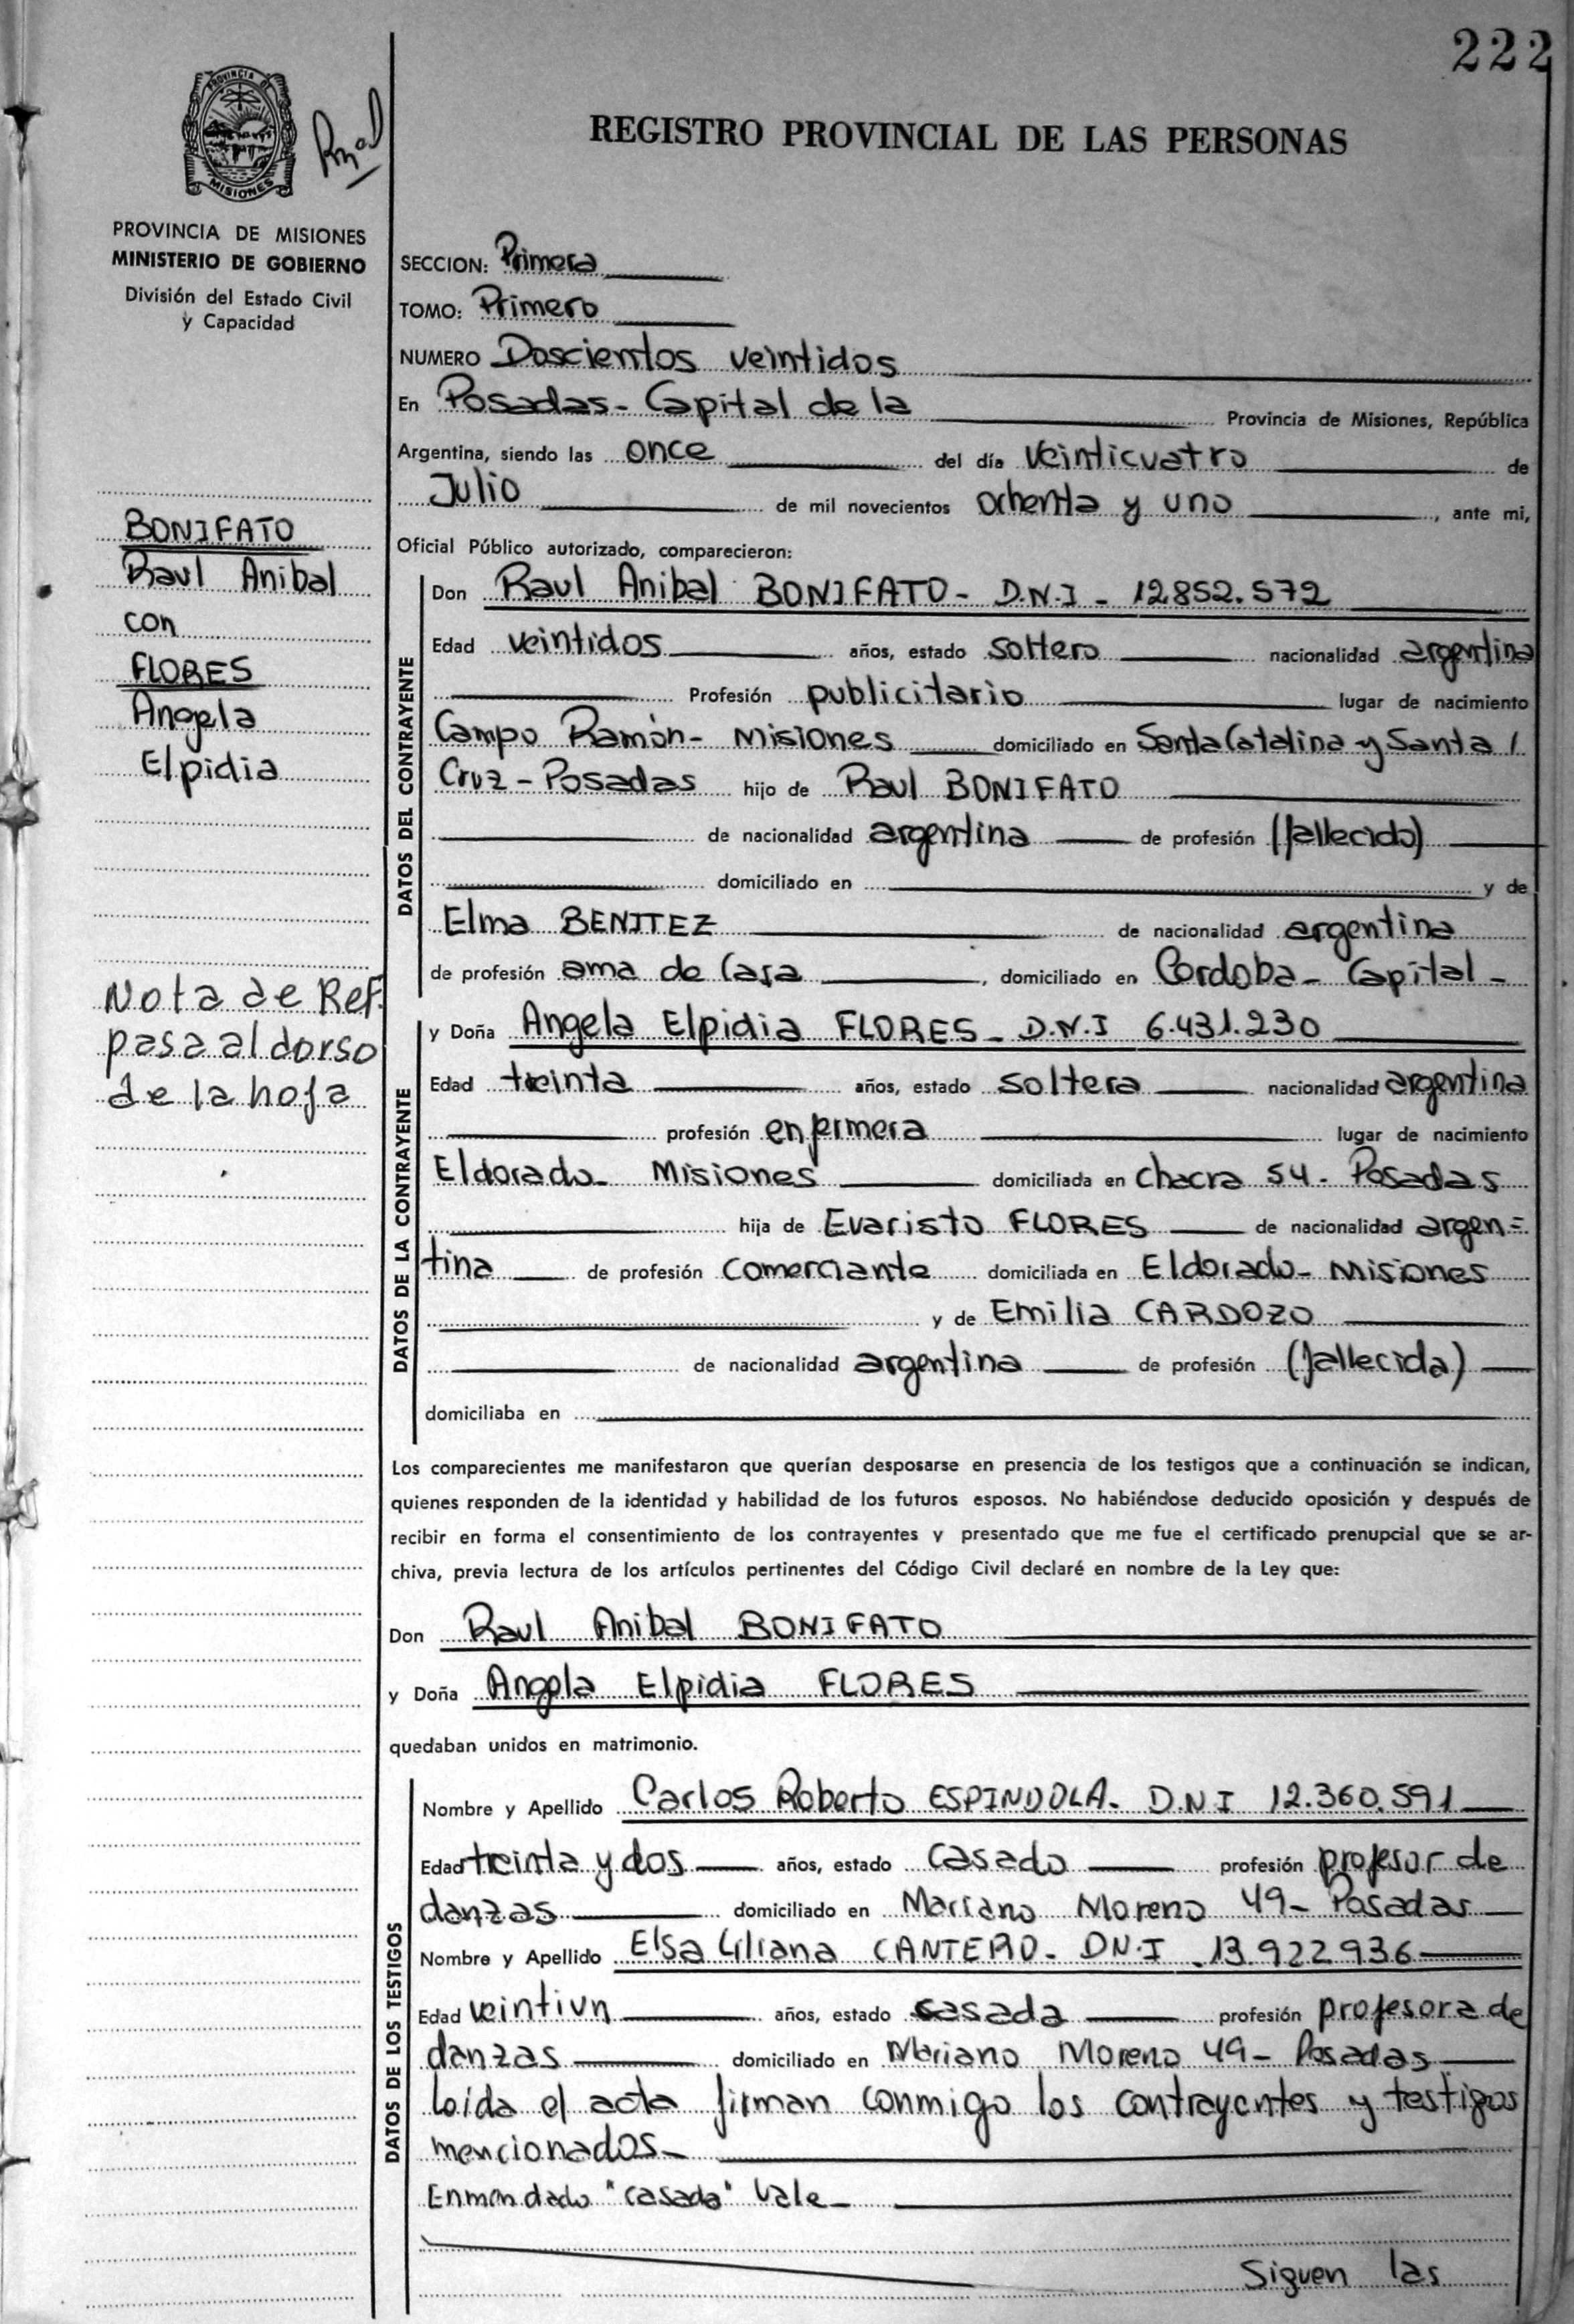 222
PROVINCIA DE
MISIONES
REGISTRO PROVINCIAL DE LAS PERSONAS
PROVINCIA DE MISIONES
MINISTERIO DE GOBIERNO
División del Estado Civil
y Capacidad
SECCION: Primera
TOMO: Primero
NUMERO Doscientos veintidos
En Posadas - Capital de la Provincia de Misiones, República
Argentina, siendo las once del día veinticuatro de
Julio de mil novecientos ochenta y uno, ante mi,
Oficial Público autorizado, comparecieron:
BONIFATO
Raul Anibal
con
FLORES
Angela
Elpidia
Nota de Ref.
pasa al dorso
de la hoja
DATOS DEL CONTRAYENTE
Don Raul Anibal BONIFATO - D.N.I - 12.852.572
Edad veintidos años, estado soltero nacionalidad argentina
Profesión publicitario lugar de nacimiento
Campo Ramón - Misiones domiciliado en Santa Catalina y Santa /
Cruz - Posadas hijo de Raul BONIFATO
de nacionalidad argentina de profesión (fallecido)
domiciliado en y de
Elma BENITEZ de nacionalidad argentina
de profesión ama de casa, domiciliado en Cordoba - Capital -
DATOS DE LA CONTRAYENTE
y Doña Angela Elpidia FLORES - D.N.I 6.431.230
Edad treinta años, estado soltera nacionalidad argentina
profesión enfermera lugar de nacimiento
Eldorado - Misiones domiciliada en chacra 54 - Posadas
hija de Evaristo FLORES de nacionalidad argen=
tina de profesión comerciante domiciliada en Eldorado - Misiones
y de Emilia CARDOZO
de nacionalidad argentina de profesión (fallecida)
domiciliaba en
Los comparecientes me manifestaron que querían desposarse en presencia de los testigos que a continuación se indican,
quienes responden de la identidad y habilidad de los futuros esposos. No habiéndose deducido oposición y después de
recibir en forma el consentimiento de los contrayentes y presentado que me fue el certificado prenupcial que se ar-
chiva, previa lectura de los artículos pertinentes del Código Civil declaré en nombre de la Ley que:
Don Raul Anibal BONIFATO
y Doña Angela Elpidia FLORES
quedaban unidos en matrimonio.
DATOS DE LOS TESTIGOS
Nombre y Apellido Carlos Roberto ESPINDOLA - D.N.I 12.360.591
Edad treinta y dos años, estado casado profesión profesor de
danzas domiciliado en Mariano Moreno 49 - Posadas
Nombre y Apellido Elsa Liliana CANTERO - DN.I 13.922.936
Edad veintiun años, estado casada profesión profesora de
danzas domiciliado en Mariano Moreno 49 - Posadas
leida el acta firman conmigo los contrayentes y testigos
mencionados -
Enmendado "casada" Vale -
Siguen las